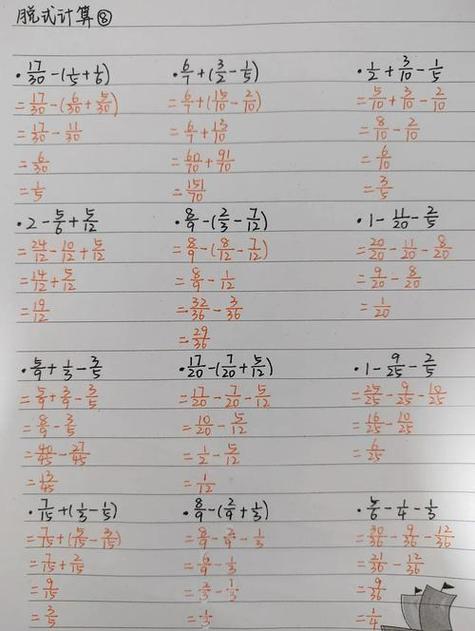 脱式计算⑧
·17/30-(1/5+1/6)
=17/30-(6/30+5/30)
=17/30-11/30
=6/30
=1/5
·6/7+(3/2-1/5)
=6/7+(15/10-2/10)
=6/7+13/10
=60/70+91/70
=151/70
·1/2+3/10-1/5
=5/10+3/10-2/10
=8/10-2/10
=6/10
=3/5
·2-5/6+5/12
=24/12-10/12+5/12
=14/12+5/12
=19/12
·8/9-(2/3-7/12)
=8/9-(8/12-7/12)
=8/9-1/12
=32/36-3/36
=29/36
·1-11/20-2/5
=20/20-11/20-8/20
=9/20-8/20
=1/20
·5/9+1/3-3/5
=5/9+3/9-3/5
=8/9-3/5
=40/45-27/45
=13/45
·17/20-(7/20+5/12)
=17/20-7/20-5/12
=10/20-5/12
=1/2-5/12
=1/12
·1-9/25-2/5
=25/25-9/25-10/25
=16/25-10/25
=6/25
·7/15+(1/3-1/5)
=7/15+(5/15-3/15)
=7/15+2/15
=9/15
=3/5
·8/9-(2/9+1/3)
=8/9-2/9-1/3
=6/9-1/3
=2/3-1/3
=1/3
·5/6-1/4-1/3
=30/36-9/36-12/36
=21/36-12/36
=9/36
=1/4